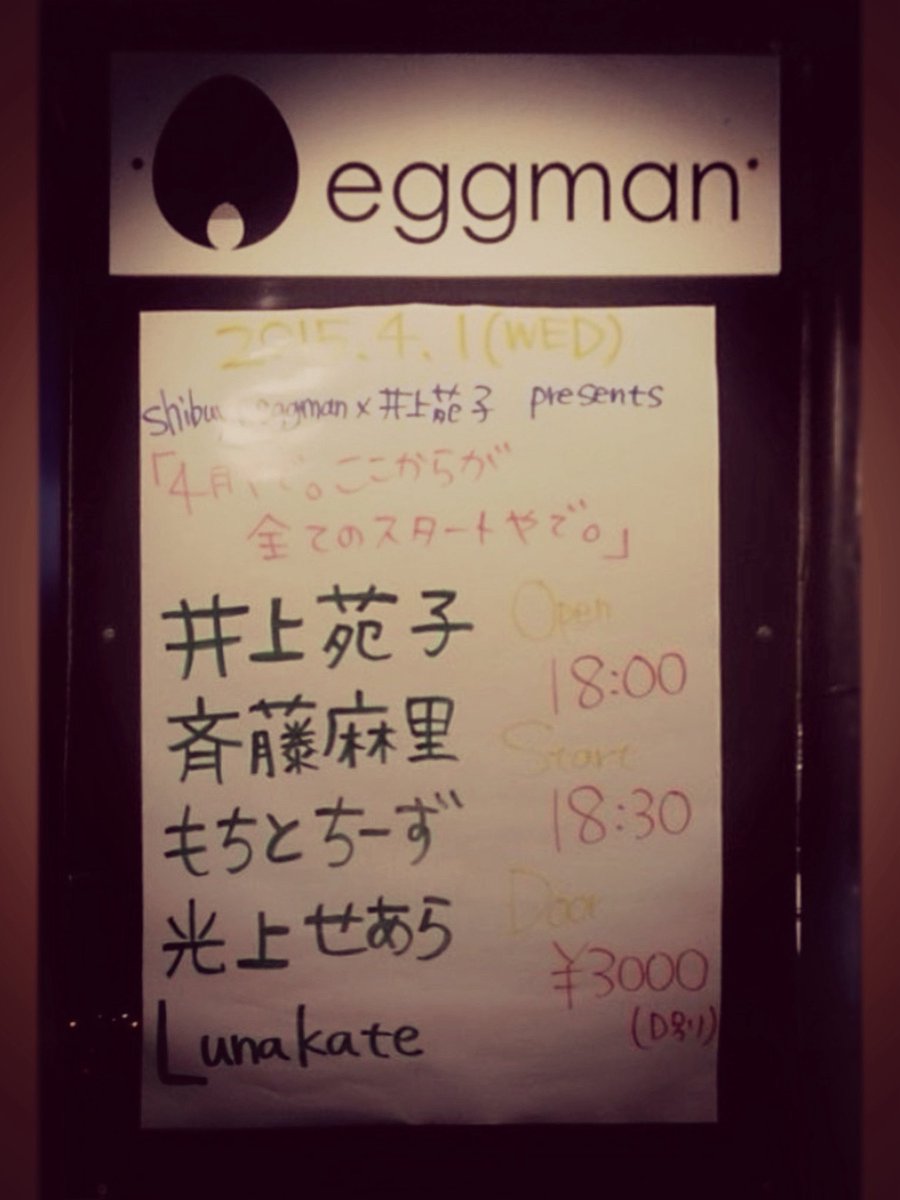 eggman
2015.4.1(WED)
shibuya eggman x 井上苑子 presents
「4月やで。ここからが
全てのスタートやで。」
井上苑子
斉藤麻里
もちとちーず
光上せあら
Lunakate
Open
18:00
Start
18:30
Door
¥3000
(D別)